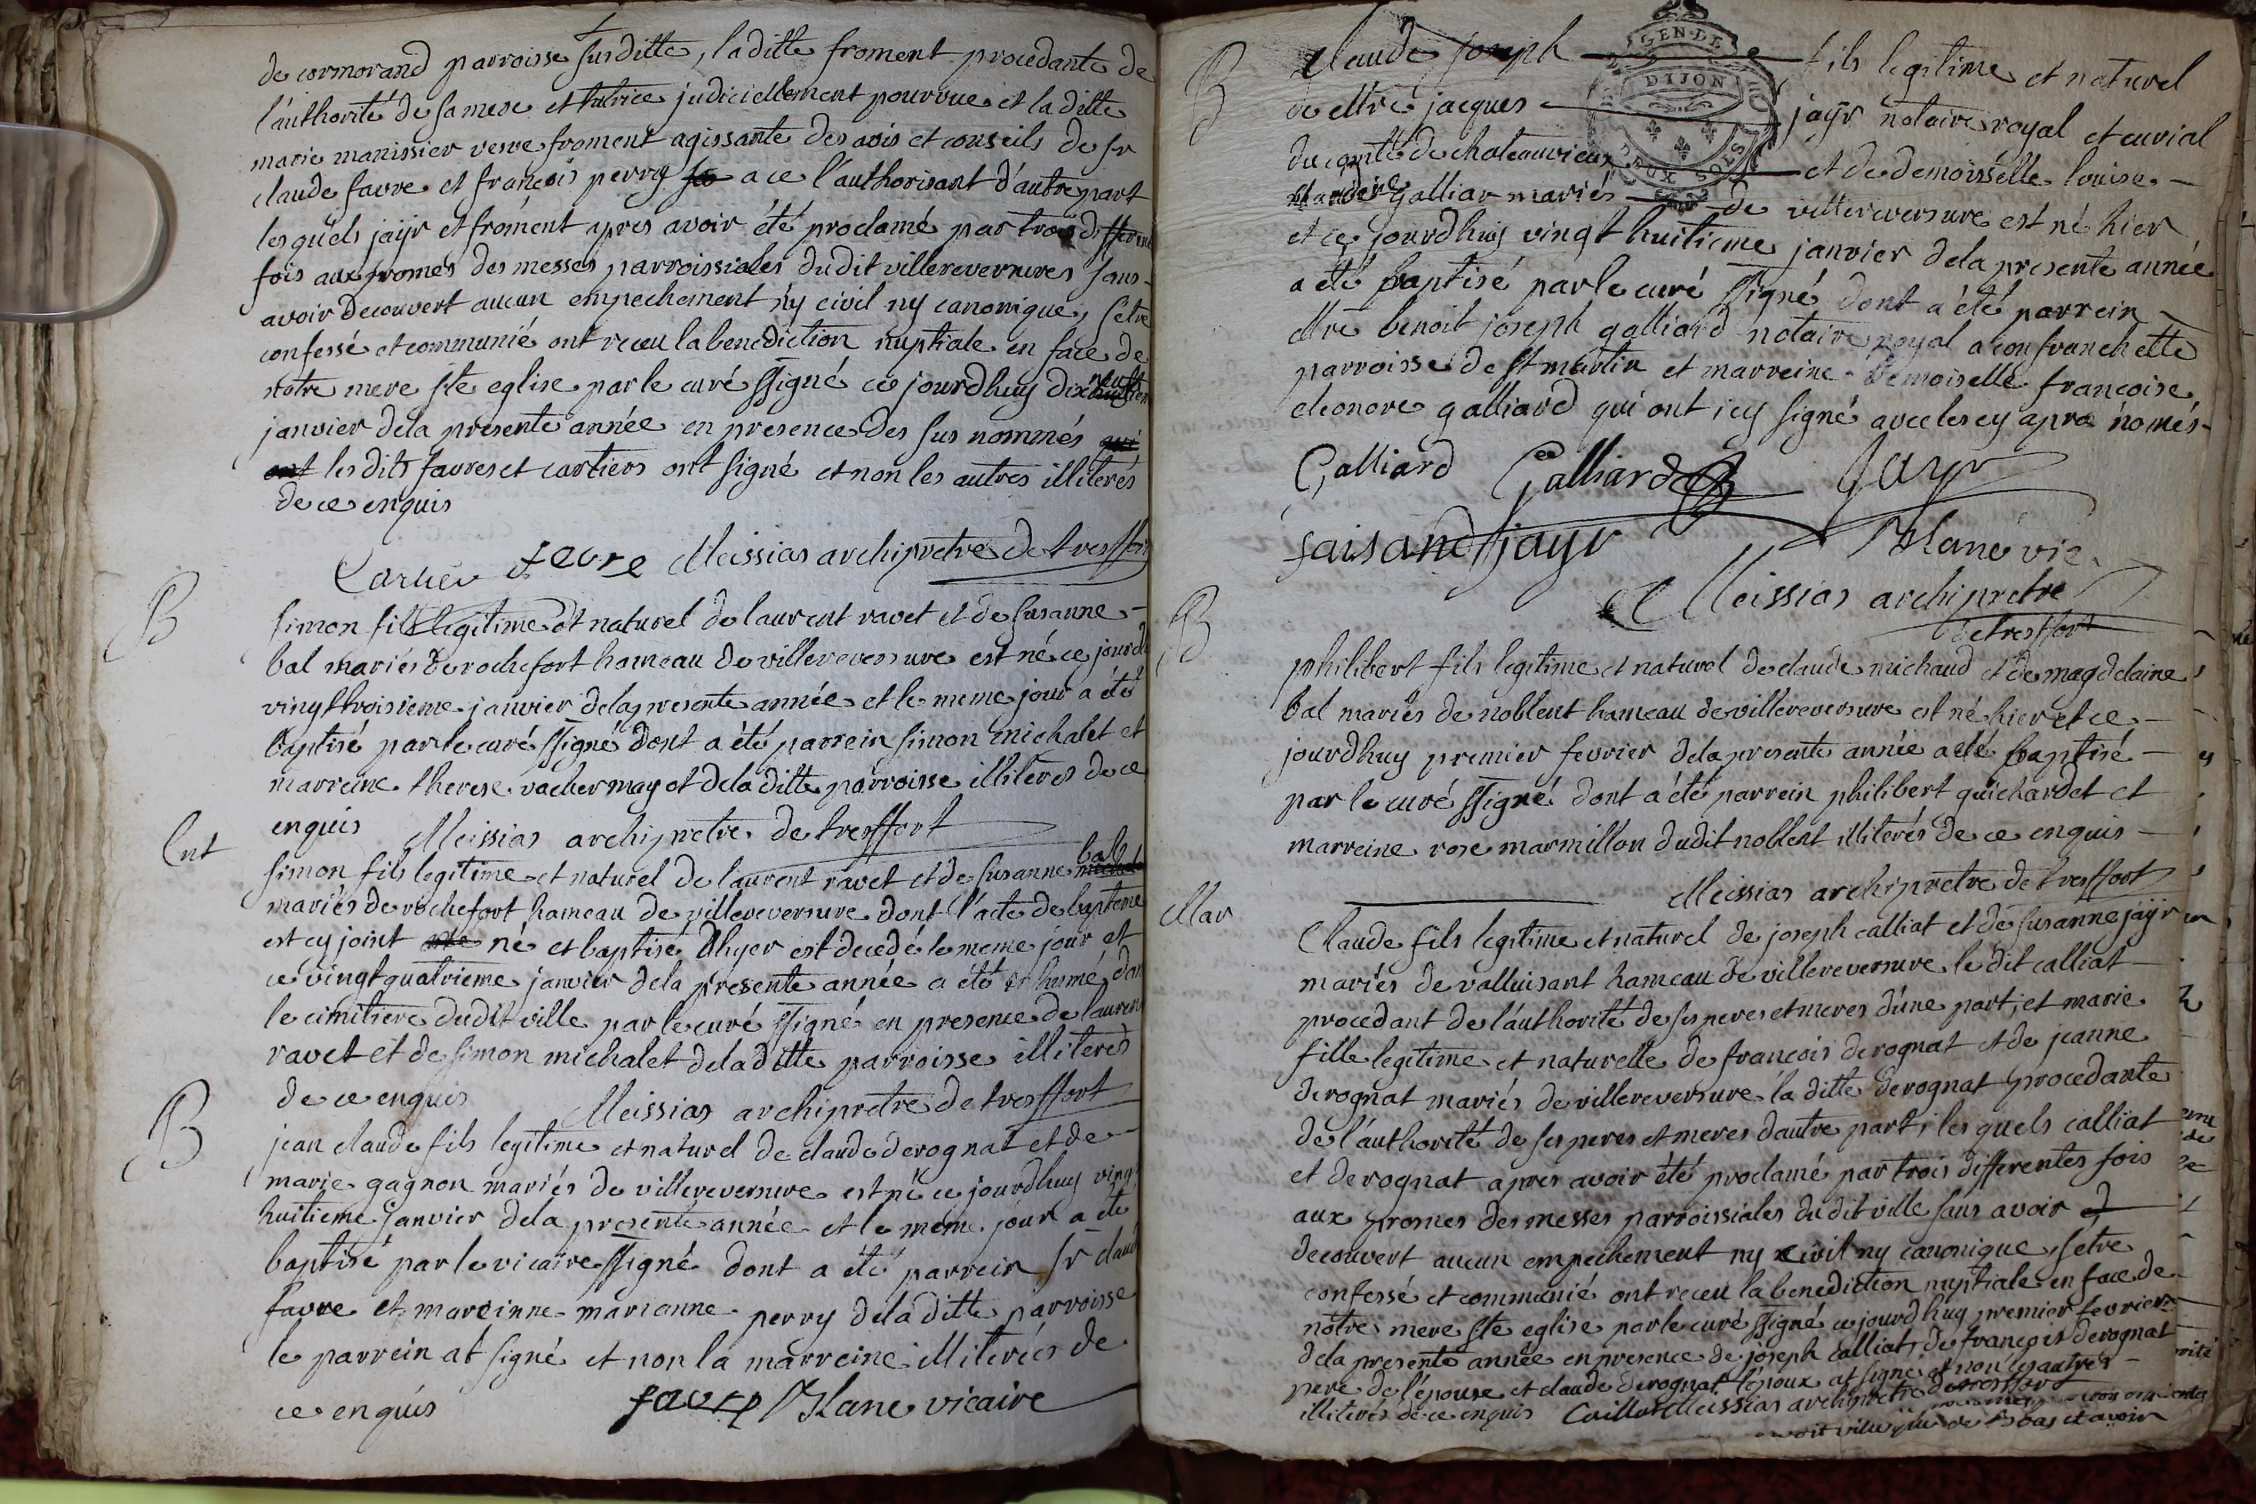 de cormorand parroisse susditte, laditte froment procedante de
l'authorité de sa mere et tutrice judiciellement pourvue et la ditte
marie manissier veuve froment agissante des avis et conseils de sr
claude favre et françois perry a ce l'authorisant d'autre part
les quels jaÿr et froment apres avoir été proclamé par trois different
fois aux promes des messes parroissiales du dit villereversures sans
avoir decouvert aucun empechement n'y civil ny canonique, setre
confessé et communié ont receu la benediction nuptiale en face de
notre mere ste eglise par le curé ssigné ce jourdhuy dix
janvier dela presente année en presence des sus nommés qui
ont les dits favres et cartiers ont signé et non les autres illiterés
de ce enquis
Cartier favre Meissias archipretre de tresffort
B
simon fils legitime et naturel de laurent ravet et de susanne
bal mariés de rochefort hameau de villereversure est né ce jourdh
vingt troisieme janvier dela presente année et le meme jour a été
baptisé par le curé ssigné dont a été parrein simon michalet et
marreine therese vacher mayot dela ditte parroisse illiterés de ce
enquis Meissias archipretre de tresffort
Ent
simon fils legitime et naturel de laurent ravet et de susanne bal
mariés de rochefort hameau de villereversure dont l'acte de bapteme
est cy joint né et baptisé dhyer est decedé le meme jour et
ce vingt quatrieme janvier dela presente année a été inhumé dan
le cimitiere dudit ville par le curé ssigné en presence de lauren
ravet et de simon michalet dela ditte parroisse illiterés
de ce enquis Meissias archipretre de tresffort
B
jean claude fils legitime et naturel de claude derognat et de
marie gagnon mariés de villereversure est né ce jourdhuy vingt
huitieme janvier dela presente année et le meme jour a été
baptisé par le vicaire ssigné dont a été parrein sr claud
favre et mareinne marianne perry dela ditte parroisse
le parrein at signé et non la marreine illiterées de
ce enquis favre Blanc vicaire
GEN. DE
DIJON
DEUX SOLS
B
Claude joseph fils legitime et naturel
de Mtre jacques jaÿr notaire royal et curial
du comté de chateauvieux et de demoiselle louise
claudine galliar mariés de villereversure est né hier
et ce jourdhuy vingt huitieme janvier dela presente année
a été baptisé par le curé ssigné dont a été parrein
Mtre benoit joseph galliard notaire royal a confranchette
parroisse de st martin et marreine demoiselle françoise
eleonore galliard qui ont icy signé avec les cy apres només
Galliard Galliard Jayr
faisand jayr Blanc vic.
Meissias archipretre
de tresffort
B
philibert fils legitime et naturel de claude michaud et de magdelaine
bal mariés de noblent hameau de villereversure est né hier et ce
jourdhuy premier fevrier dela presente année a été baptisé
par le curé ssigné dont a été parrein philibert guichardet et
marreine rose marmillon dudit noblent illiterés de ce enquis
Meissias archipretre de tresffort
Mar
Claude fils legitime et naturel de joseph calliat et de susanne jaÿr
mariés de valluisant hameau de villereversure le dit calliat
procedant de l'authorité de ses peres et meres d'une part, et marie
fille legitime et naturelle de francois derognat et de jeanne
derognat mariés de villereversure la ditte derognat procedante
de l'authorité de ses peres et meres dautre part, les quels calliat
et derognat apres avoir été proclamé par trois differentes fois
aux promes des messes parroissiales du dit ville sans avoir
decouvert aucun empechement ny civil ny canonique, setre
confessé et communié ont receu la benediction nuptiale en face de
notre mere ste eglise par le curé ssigné ce jourdhuy premier fevrier
dela presente année en presence de joseph calliat, de françois derognat
pere de l'épouse et claude derognat l'epoux at signé et non les autres
illiterés de ce enquis Caillat Meissias archipretre de tresffort